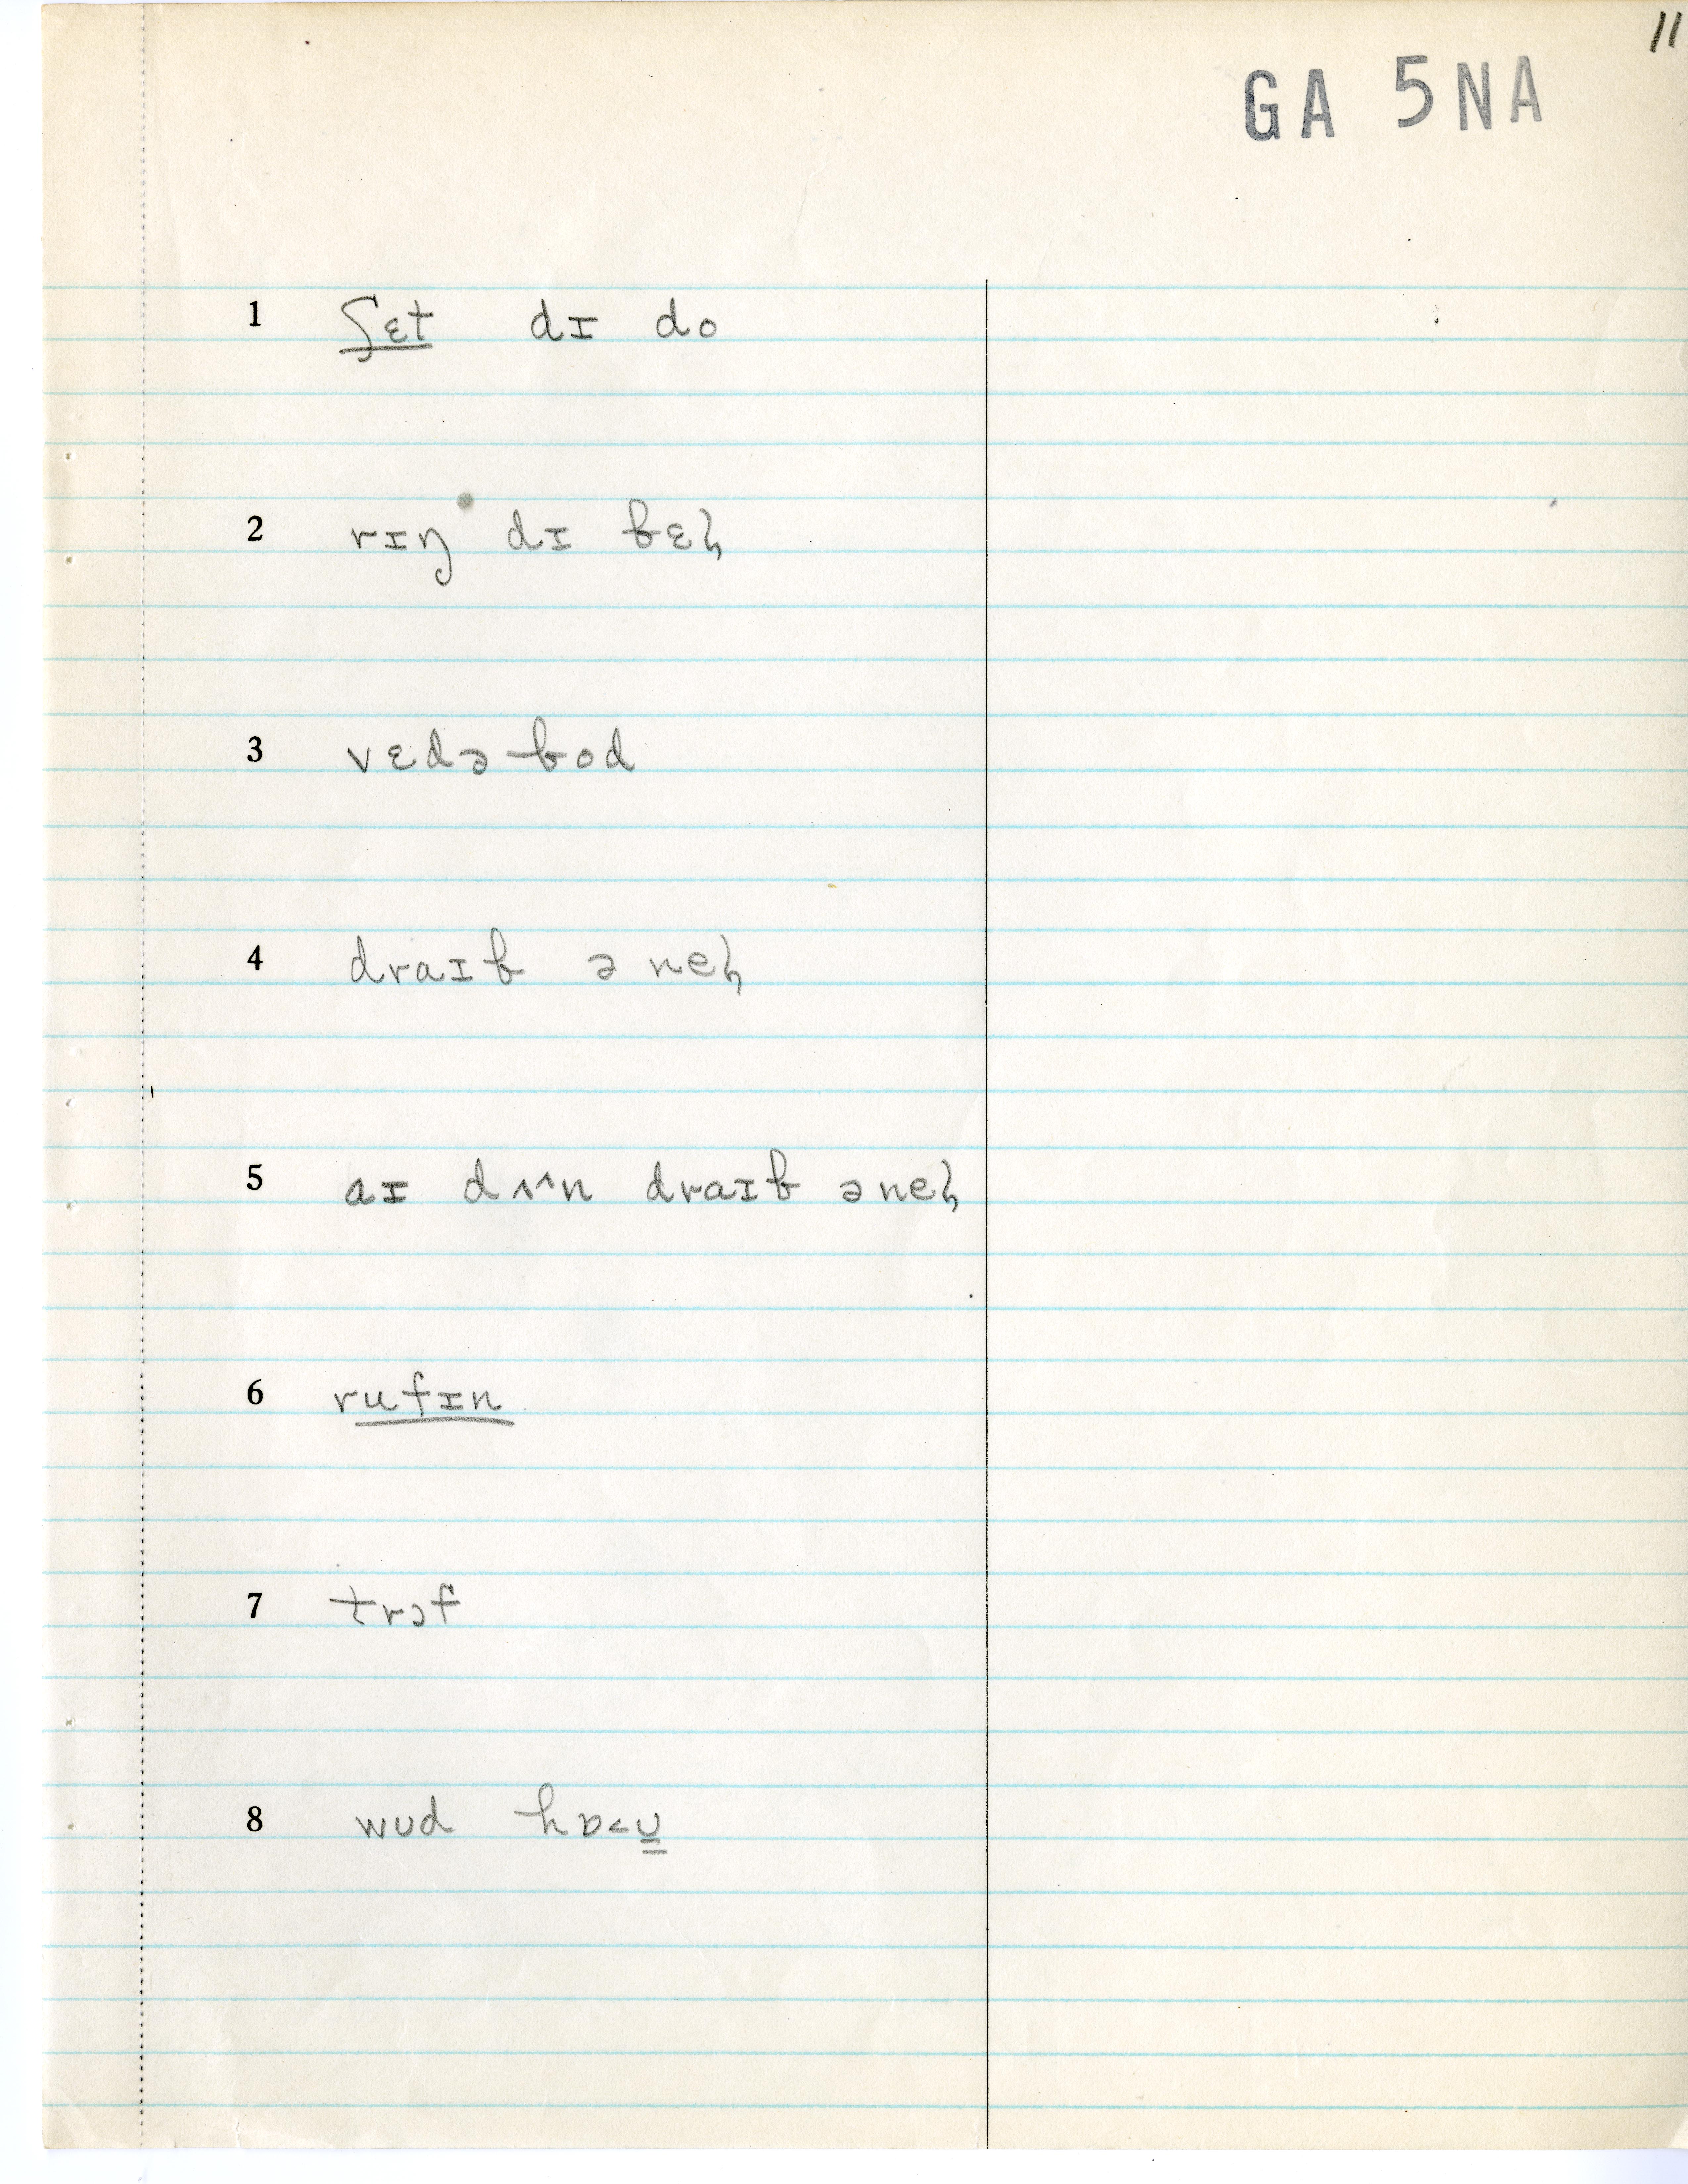 11
GA 5NA
1 ʃɛt dɪ do
2 rɪŋ dɪ bɛɫ
3 vɛdəbod
4 draɪb ə neɫ
5 aɪ dʌ^n draɪb ə neɫ
6 rufɪn
7 trɔf
8 wud hɒ<u